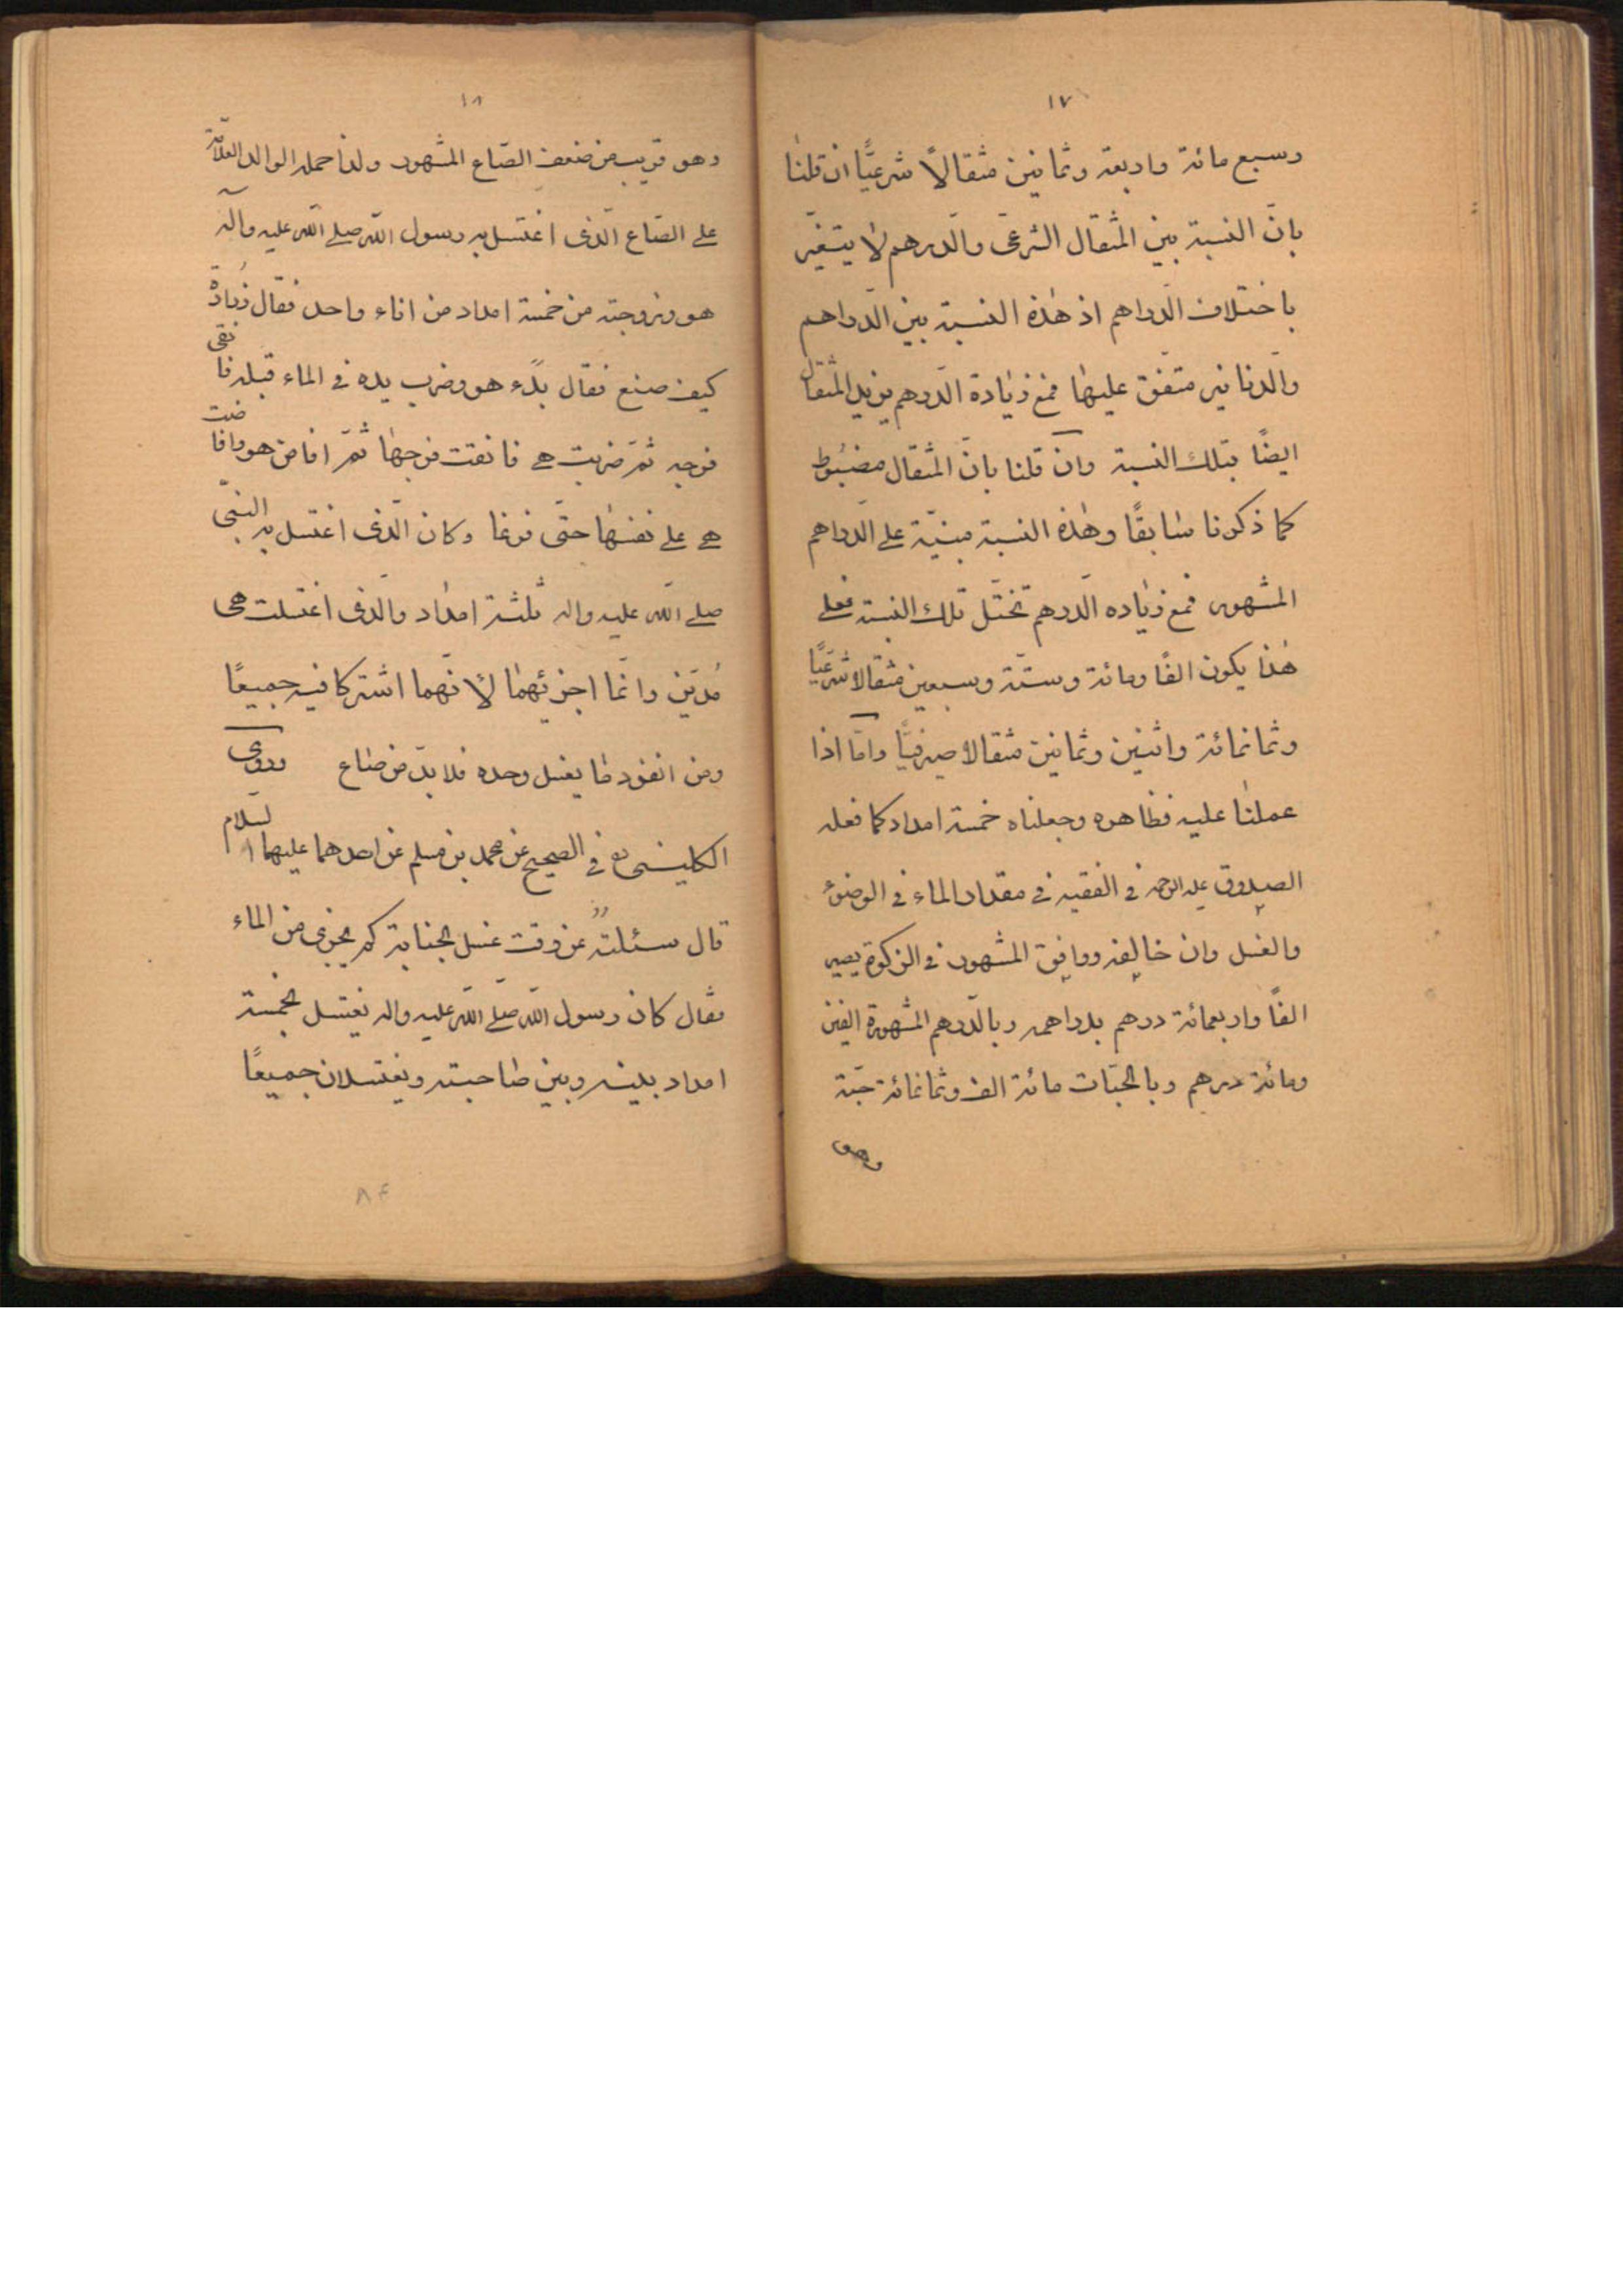 ١٧
وسبع مائة واربعة وثمانين مثقالاً شرعيًّا ان قلنا
بانّ النسبة بين المثقال الشرعى والدرهم لا يتغيّر
باختلاف الدراهم اذ هذه النسبة بين الدراهم
والدنانير متفق عليها فمع زيادة الدرهم يزيد المثقال
ايضًا بتلك النسبة وان قلنا بانّ المثقال مضبوط
كما ذكرنا سابقًا وهذه النسبة مبنيّة على الدراهم
المشهور فمع زياده الدرهم تختلّ تلك النسبة فعلى
هذا يكون الفًا ومائة وستّة وسبعين مثقالا شرعيًّا
وثمانمائة واثنين وثمانين مثقالا صيرفيًّا وامّا اذا
عملنا عليه فظاهره وجعلناه خمسة امداد كما فعله
الصدوق عليه الرحمه فى الفقيه فى مقدار الماء فى الوضوء
والغسل وان خالفه ووافق المشهور فى الزكوة يصير
الفًا واربعمائة درهم بدراهمه وبالدرهم المشهورة الفين
ومائة درهم وبالحبّات مائة الف وثمانمائة حبّة
وهو
١٨
وهو قريب من ضعف الصّاع المشهور ولذا حمله الوالد العلامّة
على الصّاع الّذى اغتسل به رسول اللّه صلى اللّه عليه وآله
هو وزوجته من خمسة امداد من اناء واحد فقال زرارة
كيف صنع فقال بدء هو وضرب يده فى الماء قبلها فانقى
فرجه ثمّ ضربت هى فانقت فرجها ثمّ افاض هو وافاضت
هى على نفسها حتّى فرغا وكان الّذى اغتسل به النبىّ
صلى اللّه عليه واله ثلثة امداد والّذى اغتسلت هى
مُدّين وانّما اجزئهما لانّهما اشتركا فيه جميعًا
ومن انفرد بالغسل وحده فلا بدّ من صاع وروى
الكلينى ره فى الصحيح عن محمد بن مسلم عن احدهما عليهما السّلام
قال سئلته عن وقت غسل الجنابة كم يجزى من الماء
فقال كان رسول اللّه صلّى اللّه عليه واله يغتسل بخمسة
امداد بينه وبين صاحبته ويغتسلان جميعًا
٨٤